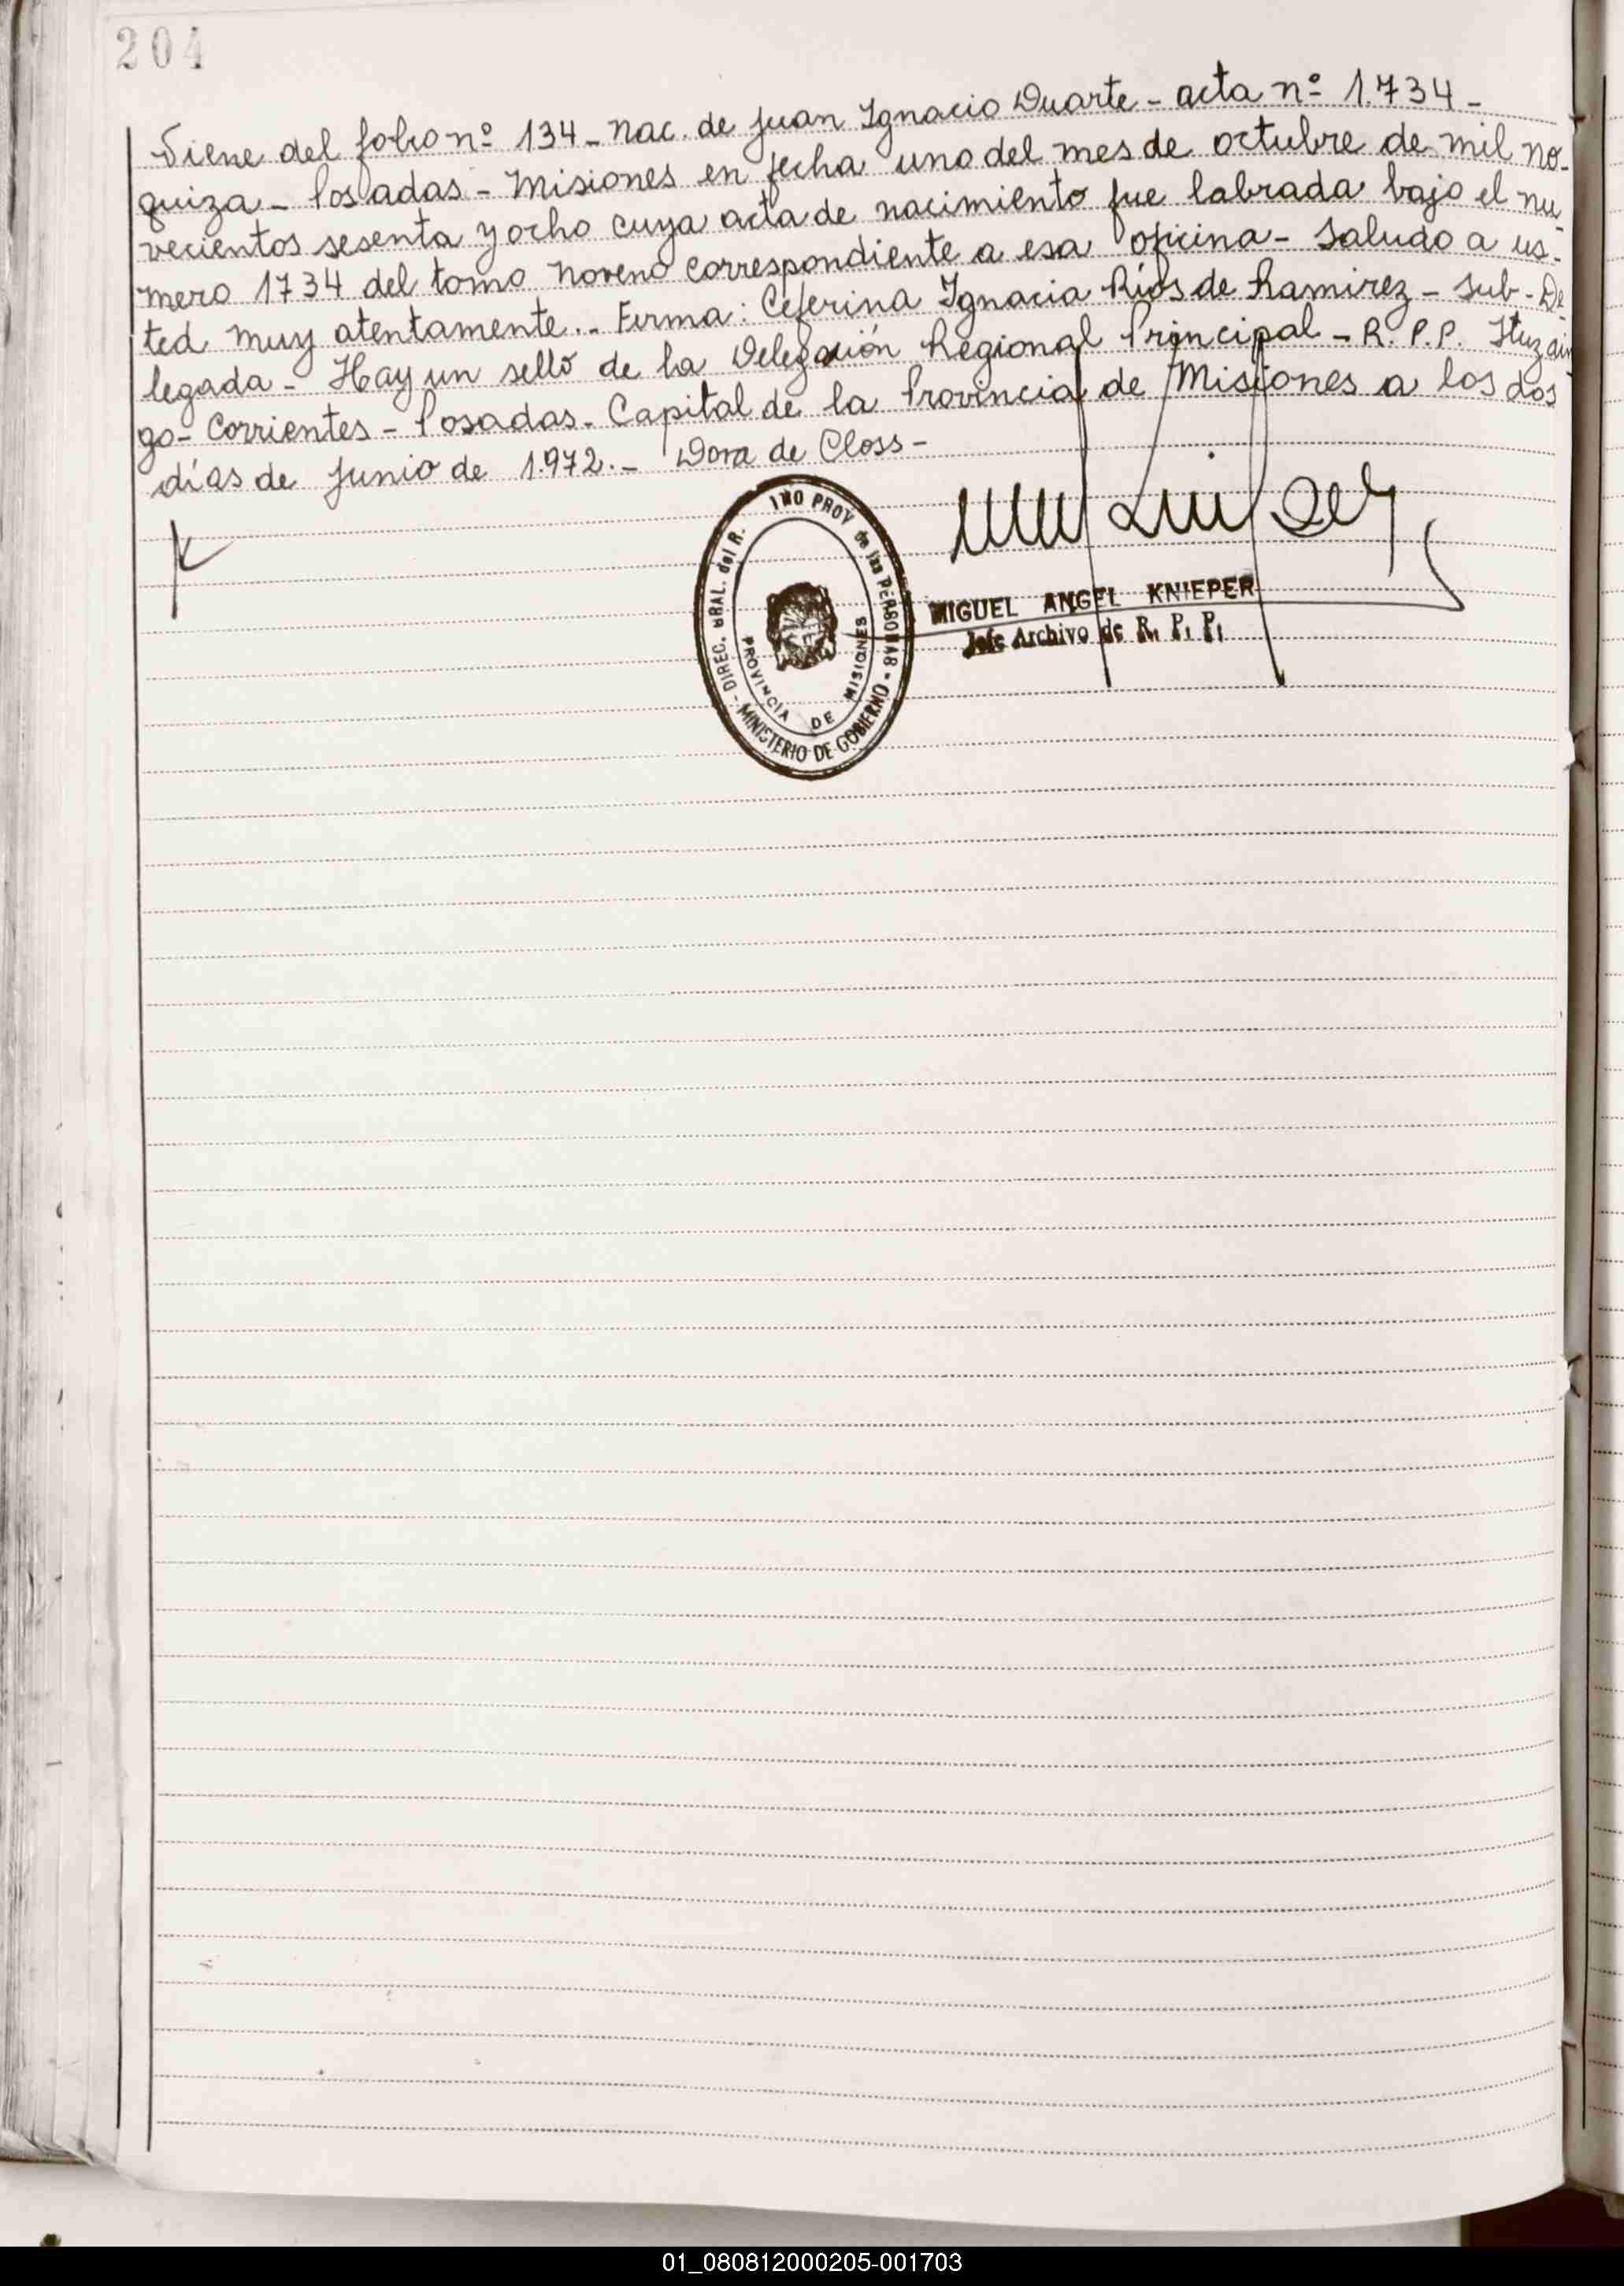 204
Viene del folio nº 134 - nac. de Juan Ignacio Duarte - acta nº 1.734 -
quiza - Posadas - Misiones en fecha uno del mes de octubre de mil no-
vecientos sesenta y ocho cuya acta de nacimiento fue labrada bajo el nu-
mero 1734 del tomo noveno correspondiente a esa oficina - Saludo a us-
ted muy atentamente. - Firma: Ceferina Ignacia Ríos de Ramirez - Sub - De
legada - Hay un sello de la Delegación Regional Principal - R. P. P. Ituzain
go - Corrientes - Posadas - Capital de la Provincia de Misiones a los dos
días de Junio de 1.972. - Dora de Closs -
DIREC. GRAL. del R. PROV de las PERSONAS - MINISTERIO DE GOBIERNO -
PROVINCIA DE MISIONES
MIGUEL ANGEL KNIEPER
Jefe Archivo de R. P. P.
01_080812000205-001703